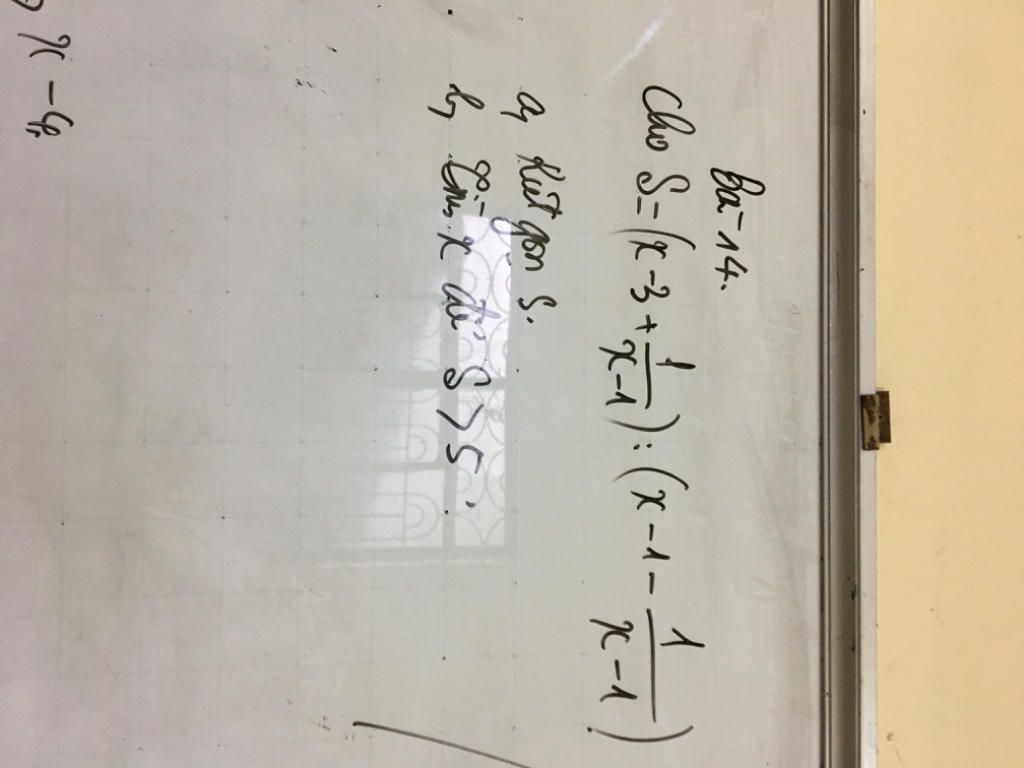 Bài 14.
Cho S = (x - 3 + 1/(x-1)) : (x - 1 - 1/(x-1))
a, Rút gọn S.
b, Tìm x để S > 5.
x - y